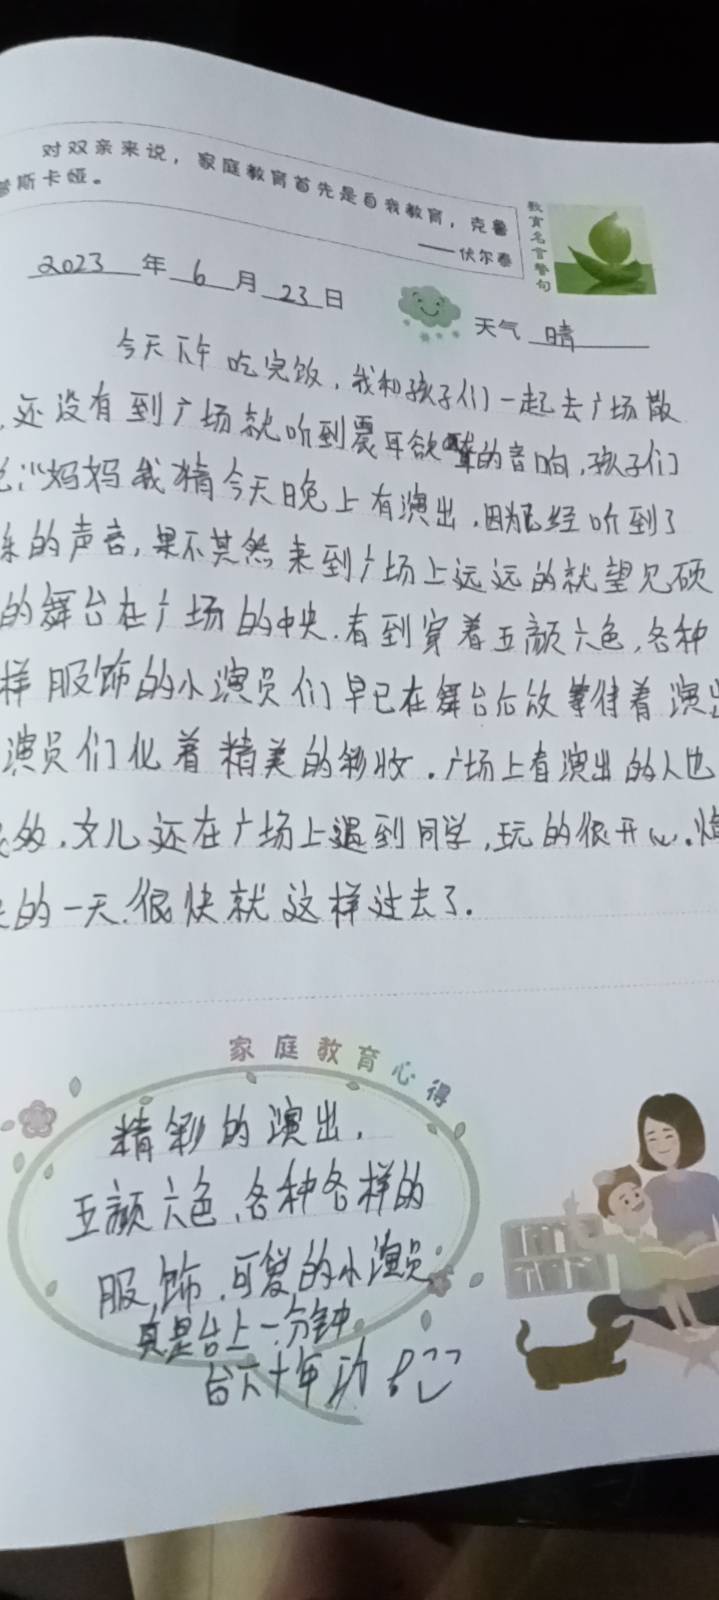 对双亲来说，家庭教育首先是自我教育，克鲁
普斯卡娅。
——伏尔泰
教育名言警句
2023年6月23日
天气 晴
今天下午吃完饭，我和孩子们一起去广场散
，还没有到广场就听到震耳欲聋的音响，孩子们
说：“妈妈我猜今天晚上有演出，因为已经听到了
乐的声音，果不其然来到广场上远远的就望见硕
的舞台在广场的中央.看到穿着五颜六色，各种
样服饰的小演员们早已在舞台后放等待着演出
演员们化着精美的彩妆.广场上看演出的人也
多，女儿还在广场上遇到同学，玩的很开心.愉
的一天.很快就这样过去了.
家庭教育心得
精彩的演出，
五颜六色、各种各样的
服饰，可爱的小演员
真是台上一分钟
台下十年功